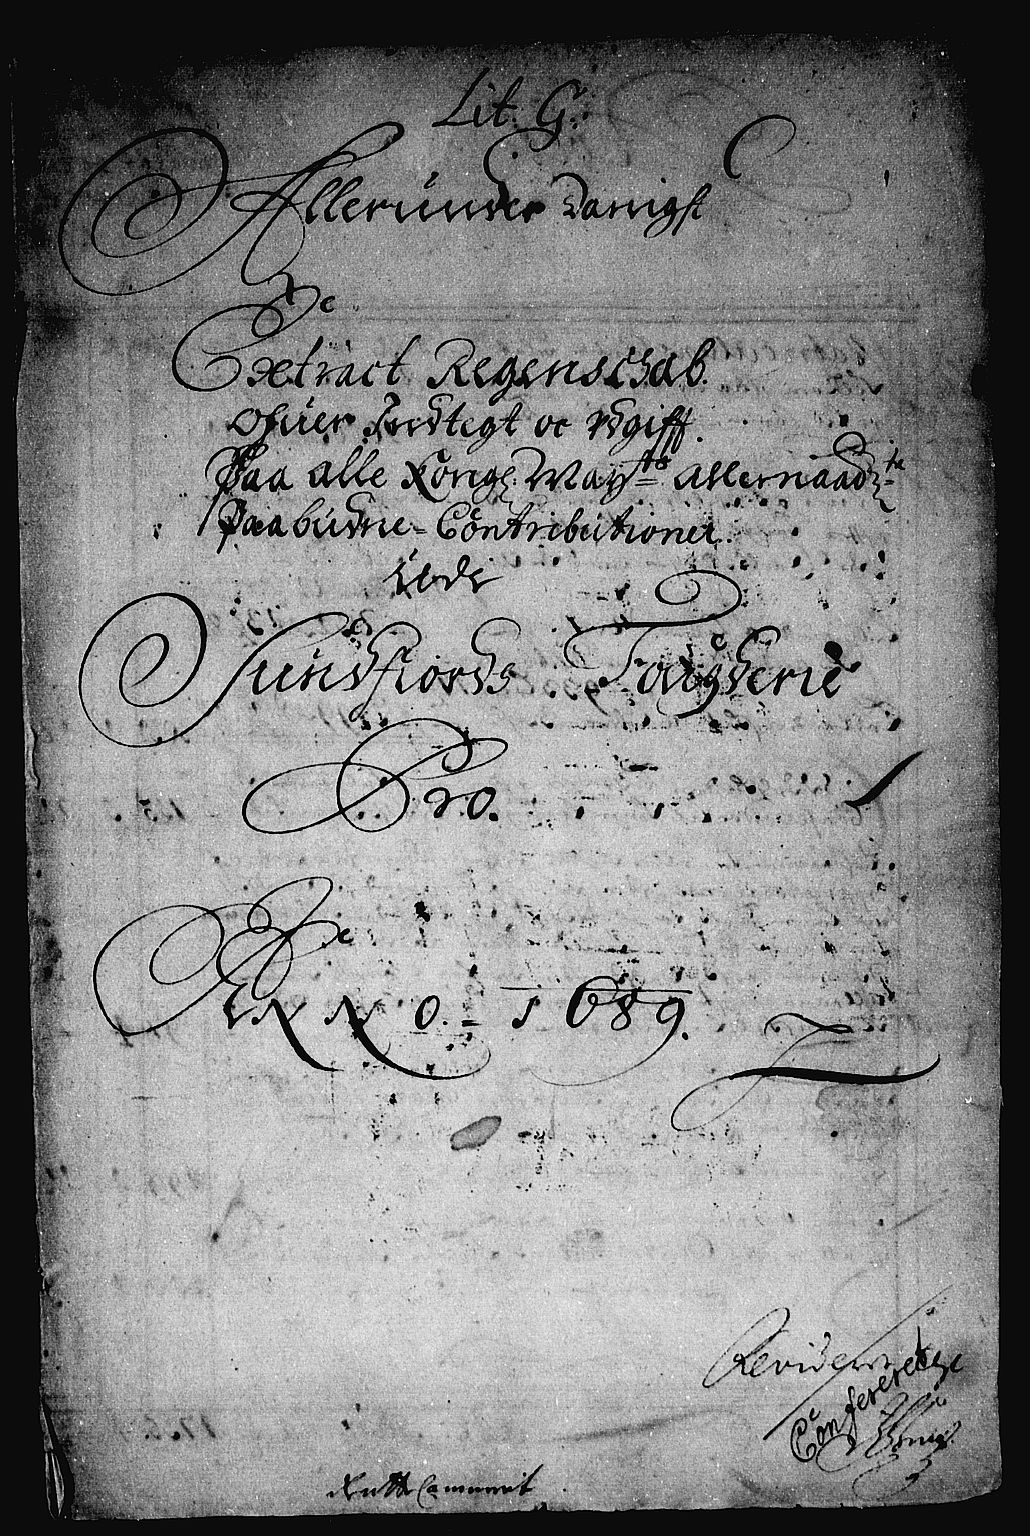 Lit. G.
Allerunder Danigst
Extract Regenschab.
Ofuer Indtegt oc Udgifft.
Paa alle Kongl: Maytz= Allernaadste
Paabudne= Contributioner
Udj
Sundfiords Fougderie
Pro.
ANNO.= 1689.
Revideret
Confereret